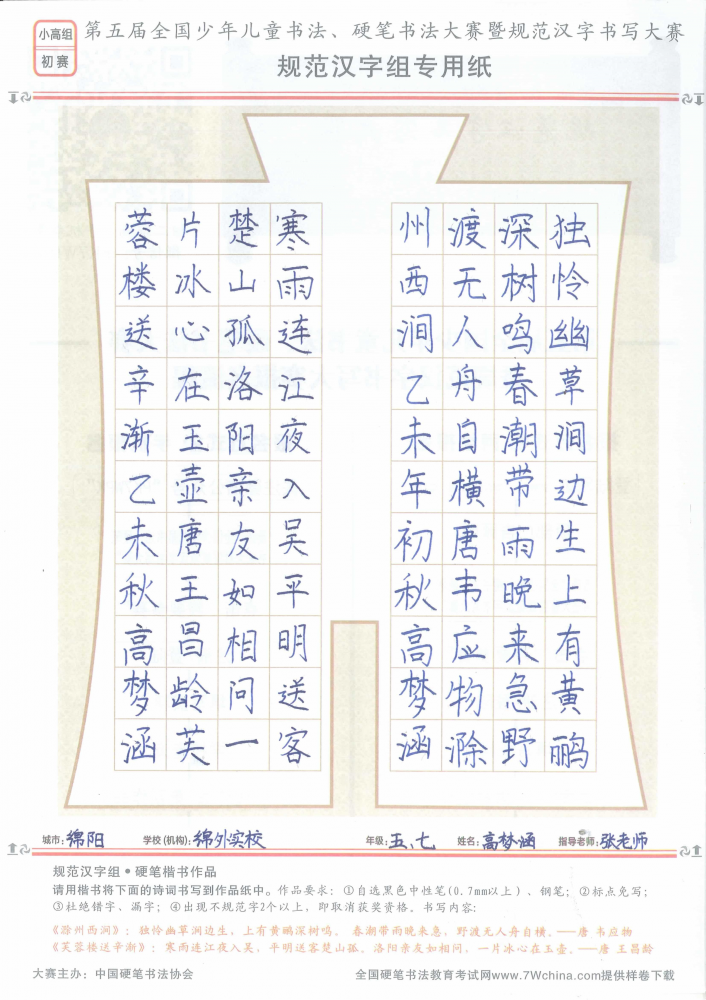 小高组
初赛
第五届全国少年儿童书法、硬笔书法大赛暨规范汉字书写大赛
规范汉字组专用纸
独怜幽草涧边生上有黄鹂
深树鸣春潮带雨晚来急野
渡无人舟自横唐韦应物滁
州西涧乙未年初秋高梦涵
寒雨连江夜入吴平明送客
楚山孤洛阳亲友如相问一
片冰心在玉壶唐王昌龄芙
蓉楼送辛渐乙未秋高梦涵
城市：绵阳 学校(机构)：绵外实校 年级：五、七 姓名：高梦涵 指导老师：张老师
规范汉字组•硬笔楷书作品
请用楷书将下面的诗词书写到作品纸中。作品要求：①自选黑色中性笔(0.7mm以上)、钢笔；②标点免写；
③杜绝错字、漏字；④出现不规范字2个以上，即取消获奖资格。书写内容：
《滁州西涧》：独怜幽草涧边生，上有黄鹂深树鸣， 春潮带雨晚来急，野渡无人舟自横。——唐 韦应物
《芙蓉楼送辛渐》：寒雨连江夜入吴，平明送客楚山孤。洛阳亲友如相问，一片冰心在玉壶。——唐 王昌龄
大赛主办：中国硬笔书法协会 全国硬笔书法教育考试网www.7Wchina.com提供样卷下载